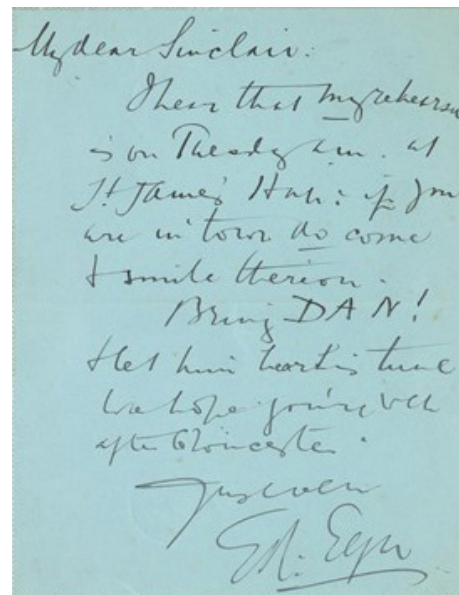 My dear Sinclair:
I hear that my rehearsal
is on Tuesday a.m. at
St James's Hall: if you
are in town do come
& smile thereon.
Bring DAN!
& let him hear his tune
We hope you're well
after Gloucester.
Yours ever
Ed. Elgar